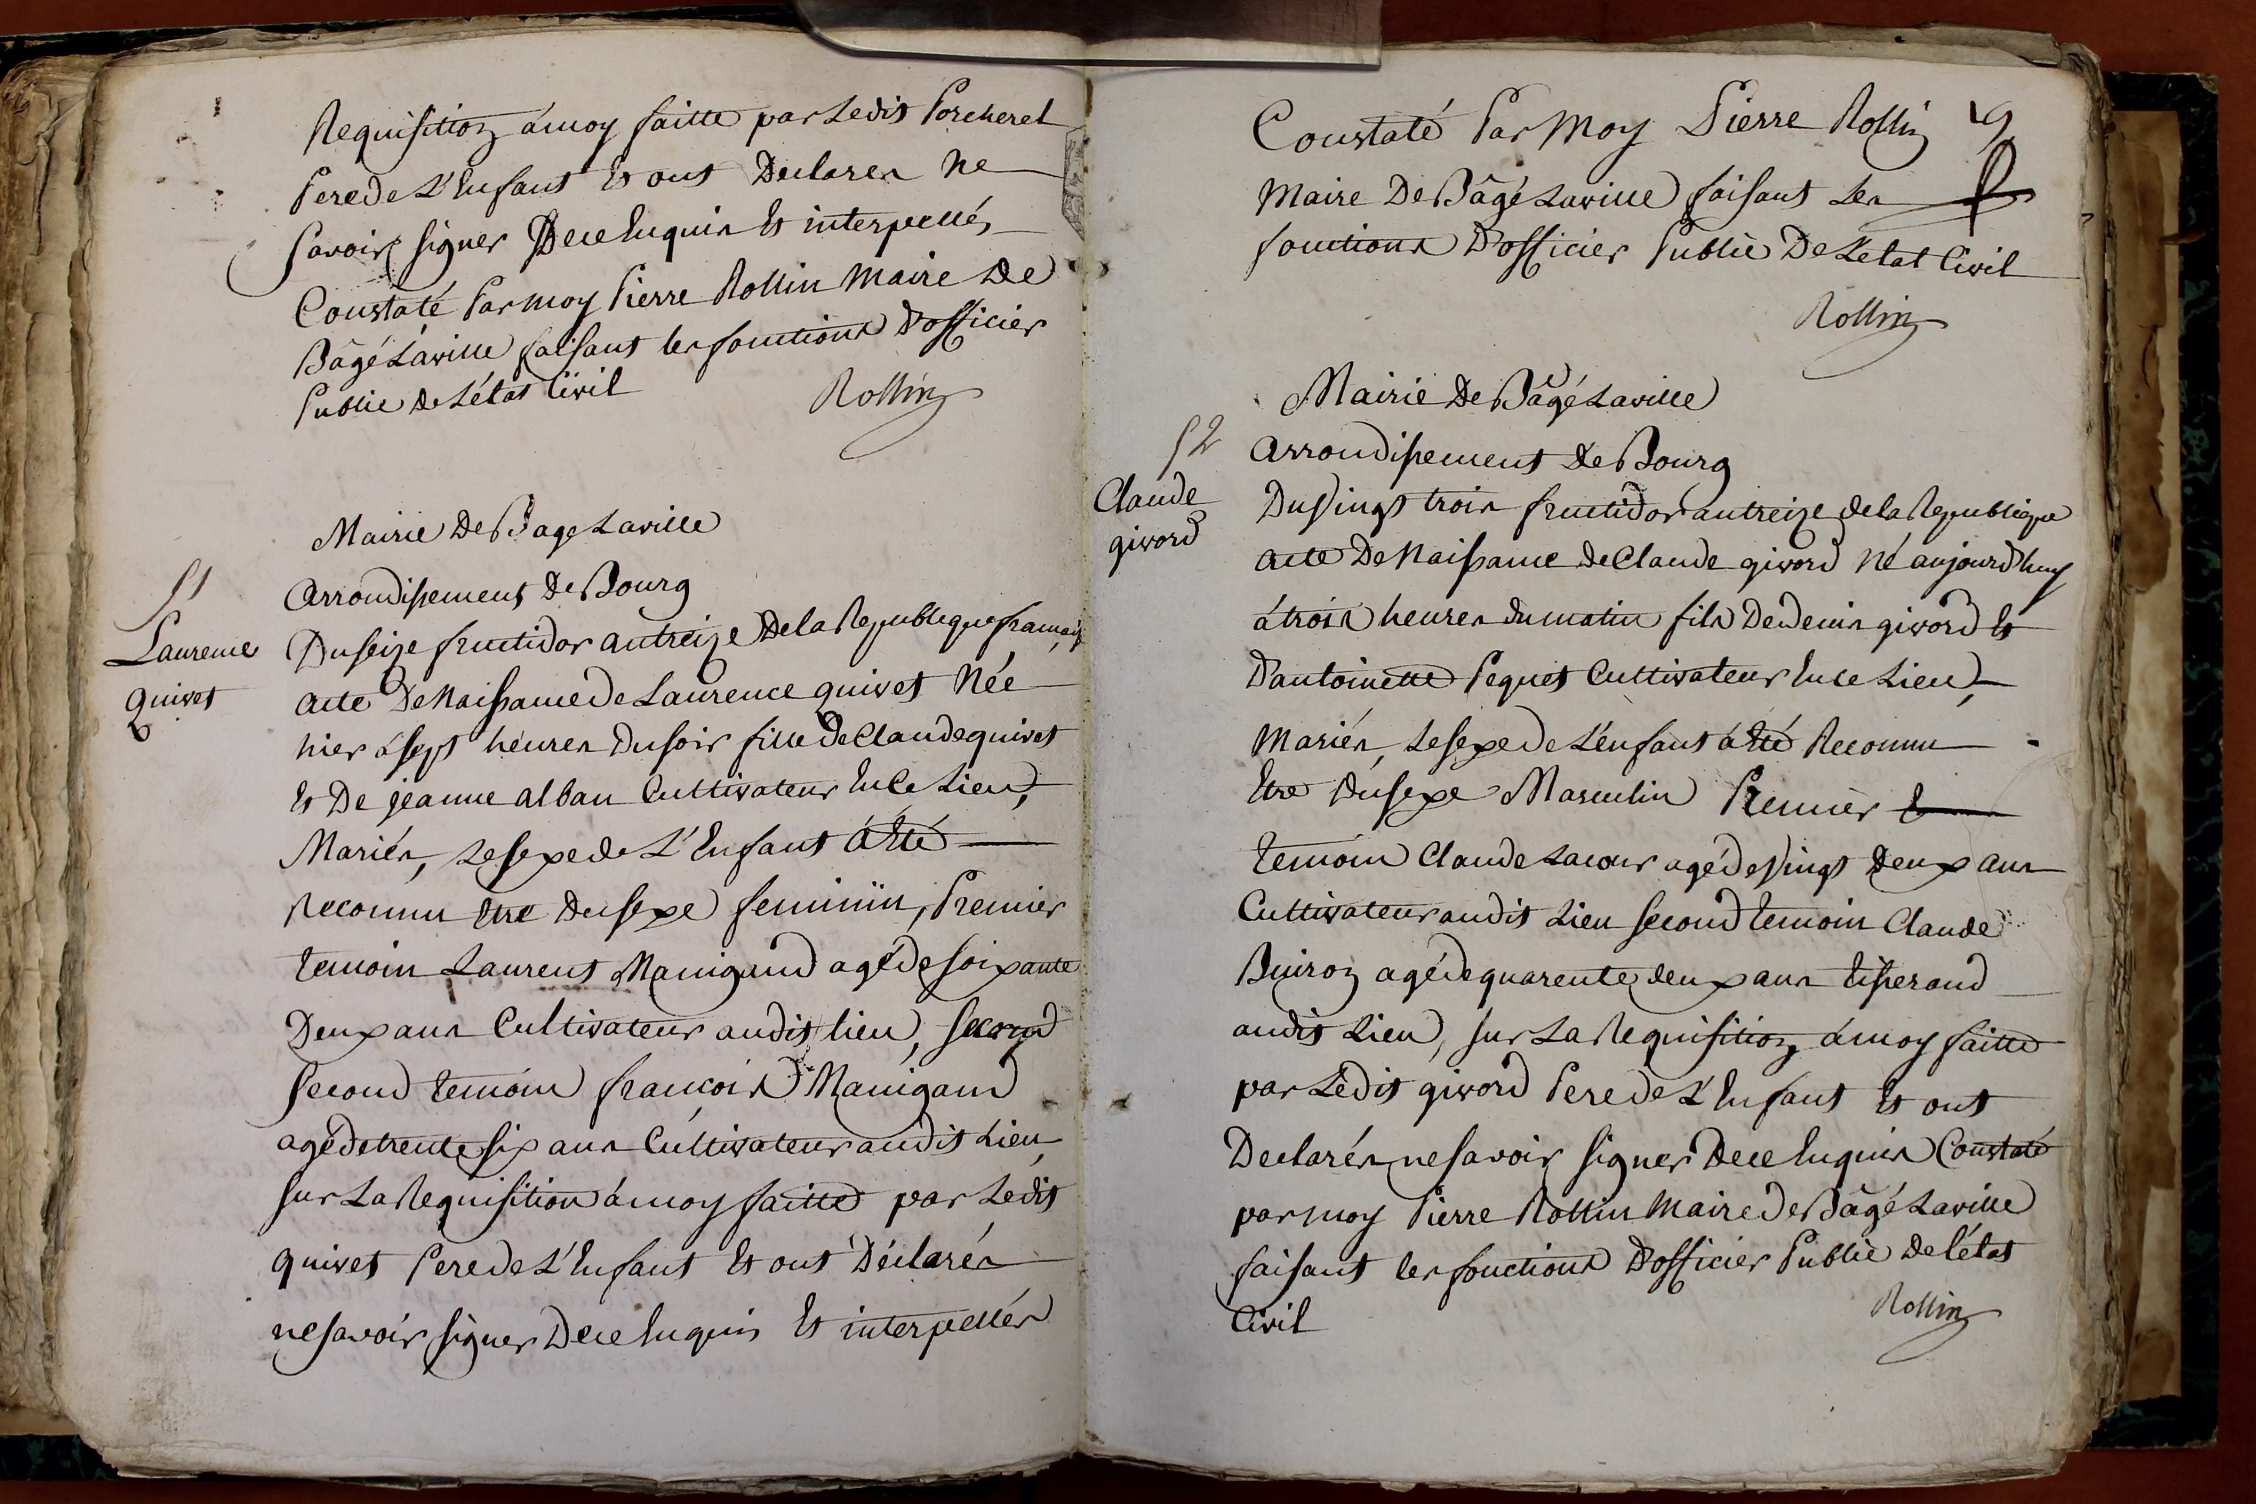 Requisition á moy faitte par Ledit Porcheret
Pere de L'Enfant Et ont Declarés Ne
Savoir signer De ce Enquis Et interpellés
Constaté Par moy Pierre Rollin Maire De
Bâgé Laville faisant les fonctions D'officier
Public De L'état Civil
Rollin
Mairie De Bage Laville
51
Arrondissement De Bourg
Laurence
Quivet
Du seize fructidor an treize De la Republique francaise
Acte De Naissance de Laurence quivet Née
hier á sept heures Du soir fille De Claude quivet
Et De jeanne alban Cultivateur En Ce Lieu,
Mariés, Le sexe de L'Enfant á Eté
Reconnu Etre Du sexe feminin, Premier
temoin Laurent Manigand agé de soixante
Deux ans Cultivateur audit lieu, second
second temoin francois Manigand
agé de trente six ans Cultivateur audit Lieu
sur La Requisition á moy faitte par Ledit
quivet Pere de L'Enfant Et ont Déclarés
ne savoir signer De ce Enquis Et interpellés
Constaté Par Moy Pierre Rollin
Maire De Bâgé Laville faisant Les
fonctions D'officier Public De L'etat Civil
Rollin
Mairie De Bâgé Laville
52
Arrondissement De Bourg
Claude
givord
Du Vingt trois fructidor an treize de la Republique
acte De Naissance de Claude givord Né aujourd'huy
á trois heures du matin fils De denis givord Et
D'antoinette Pequet Cultivateur En ce Lieu,
Mariés, Le sexe de L'enfant á Eté Reconnu
Etre Du sexe Masculin Premier
temoin Claude Lacour agé de Vingt Deux ans
Cultivateur audit Lieu second temoin Claude
Buiron agé de quarente deux ans tisserand
audit Lieu, sur La Requisition á moy faitte
par Ledit givord Pere de L'Enfant Et ont
Declarés ne savoir signer De ce Enquis Constaté
par moy Pierre Rollin Maire De Bâgé Laville
faisant les fonctions D'officier Public De L'état
Civil
Rollin